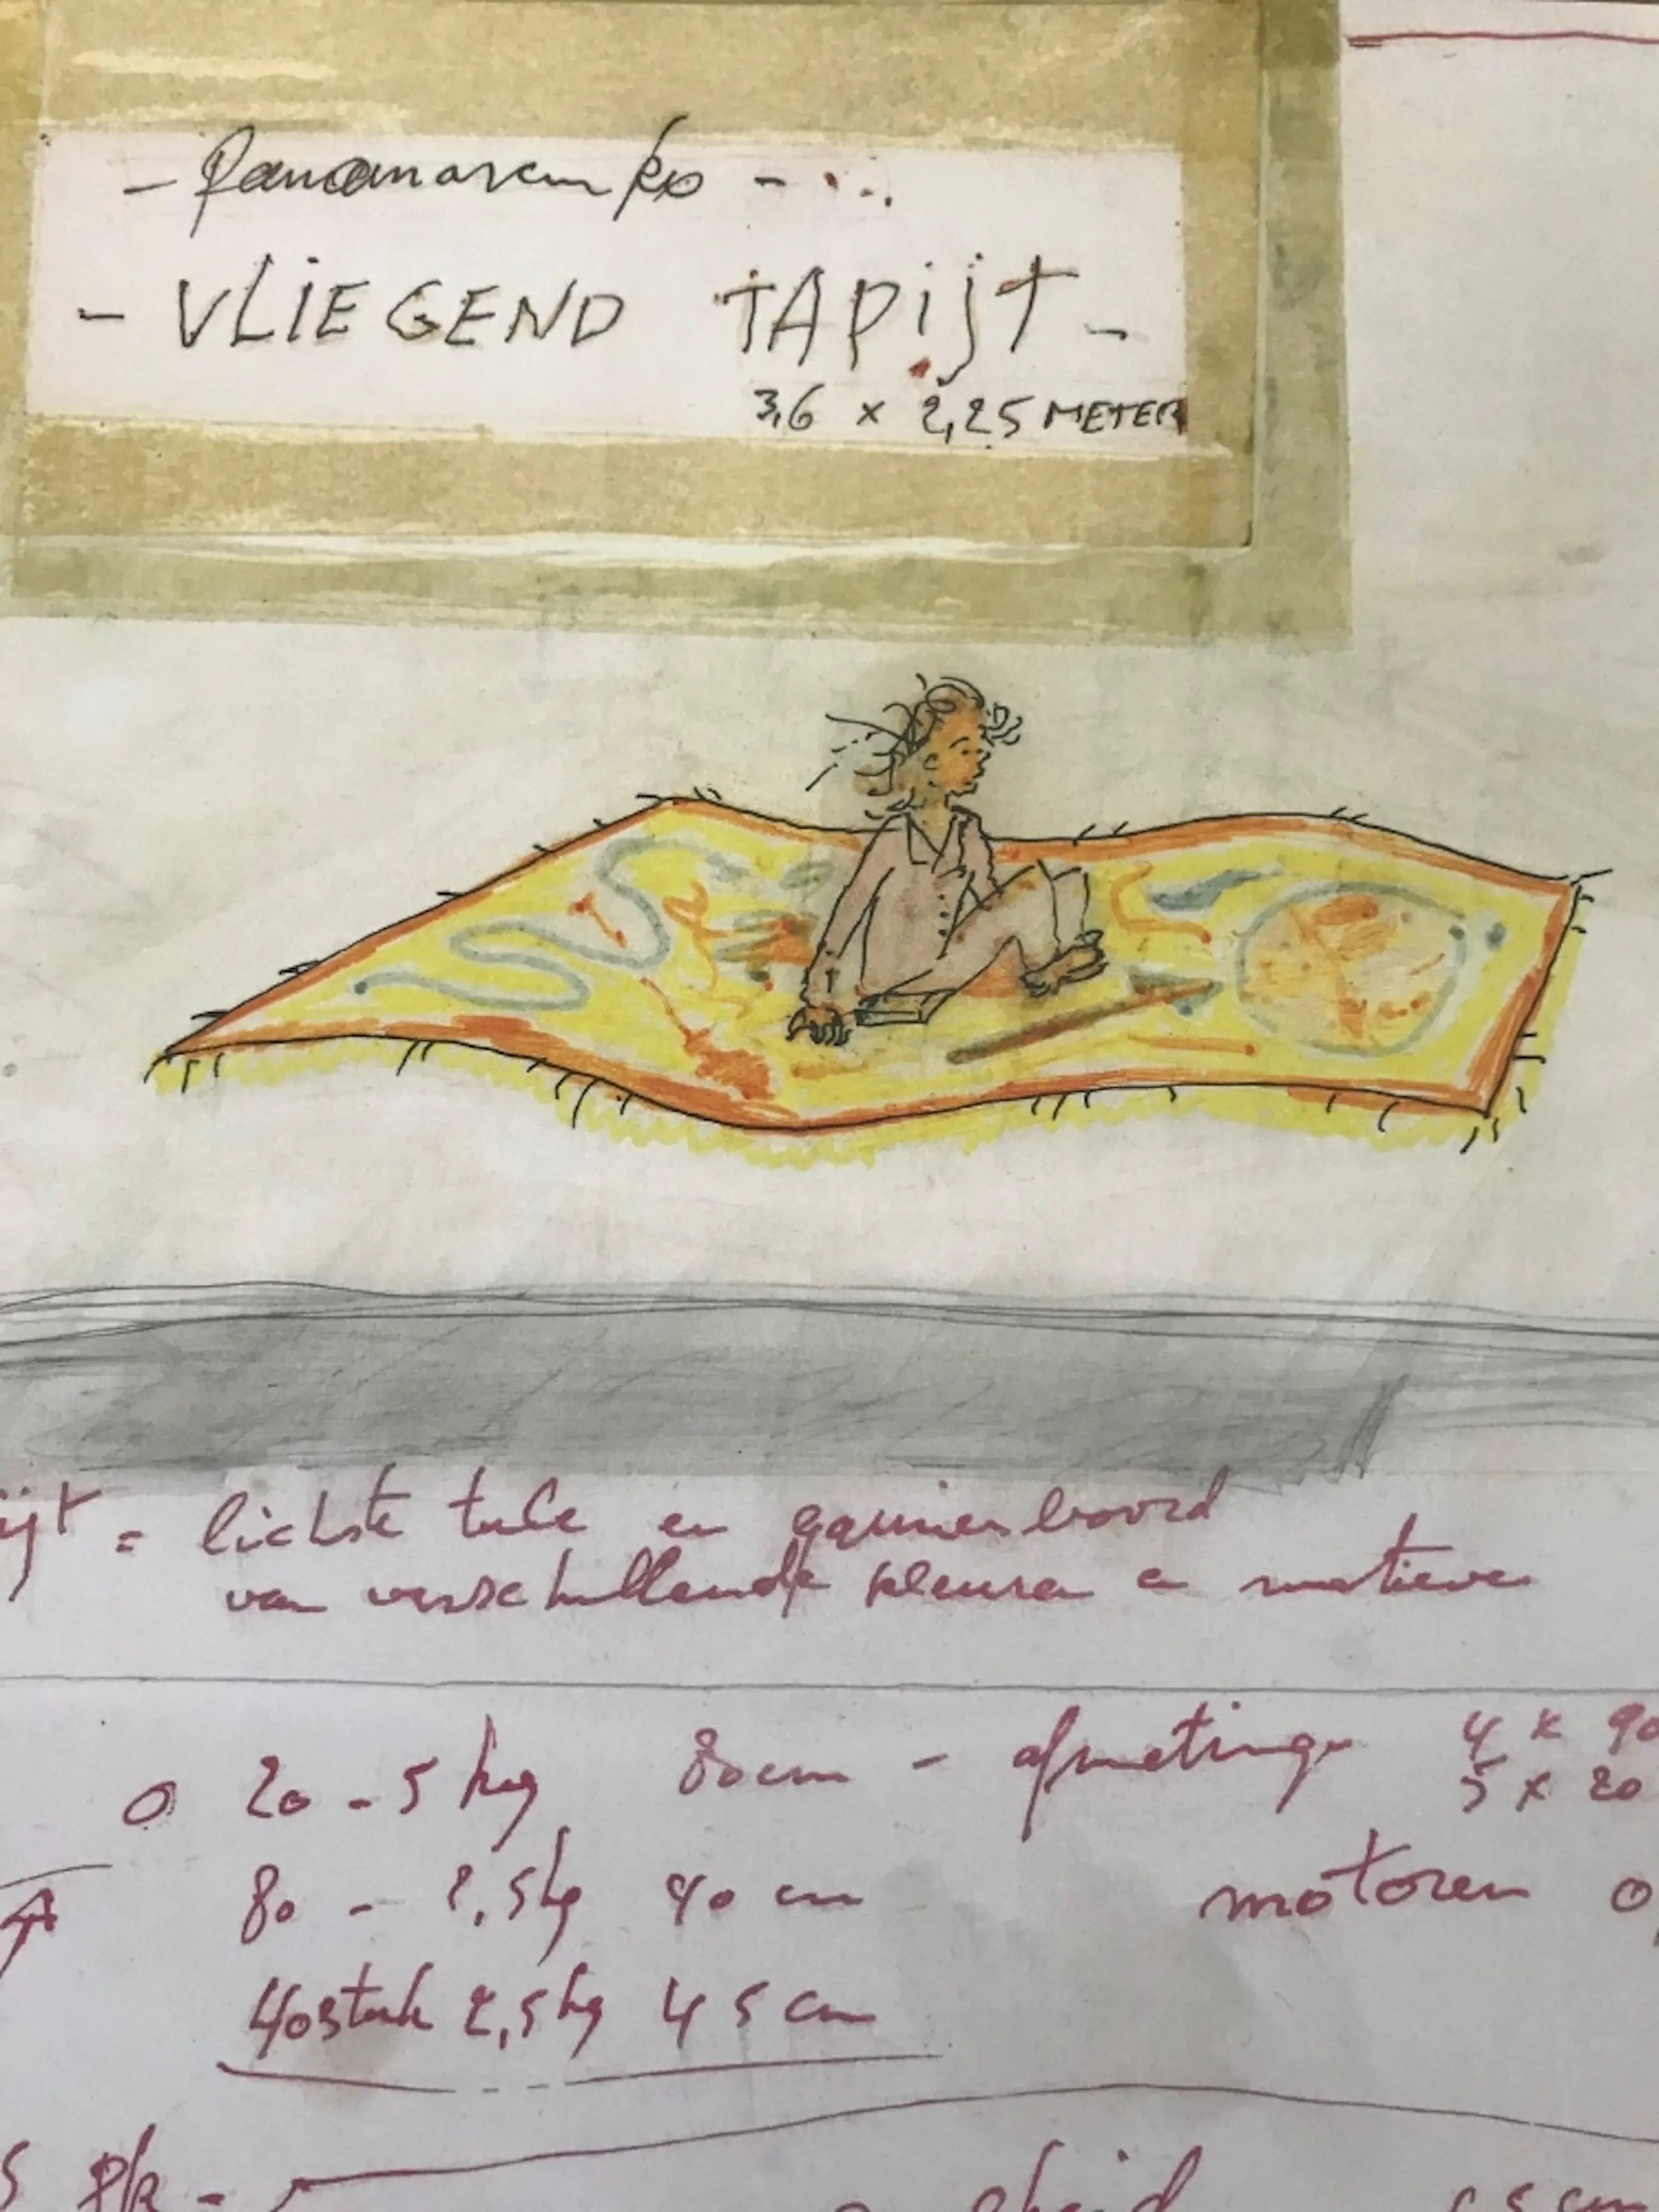 - Panamarenko - ...
- VLIEGEND TAPijT -
3,6 x 2,25 METER
= lichste tule en
van verschillende kleuren en motieven
0 20 - 5 kg 80 cm - afmetingen 4 x 90
5 x 20
80 - 2,5 kg 40 cm motoren
40 stuk 2,5 kg 45 cm
pk -